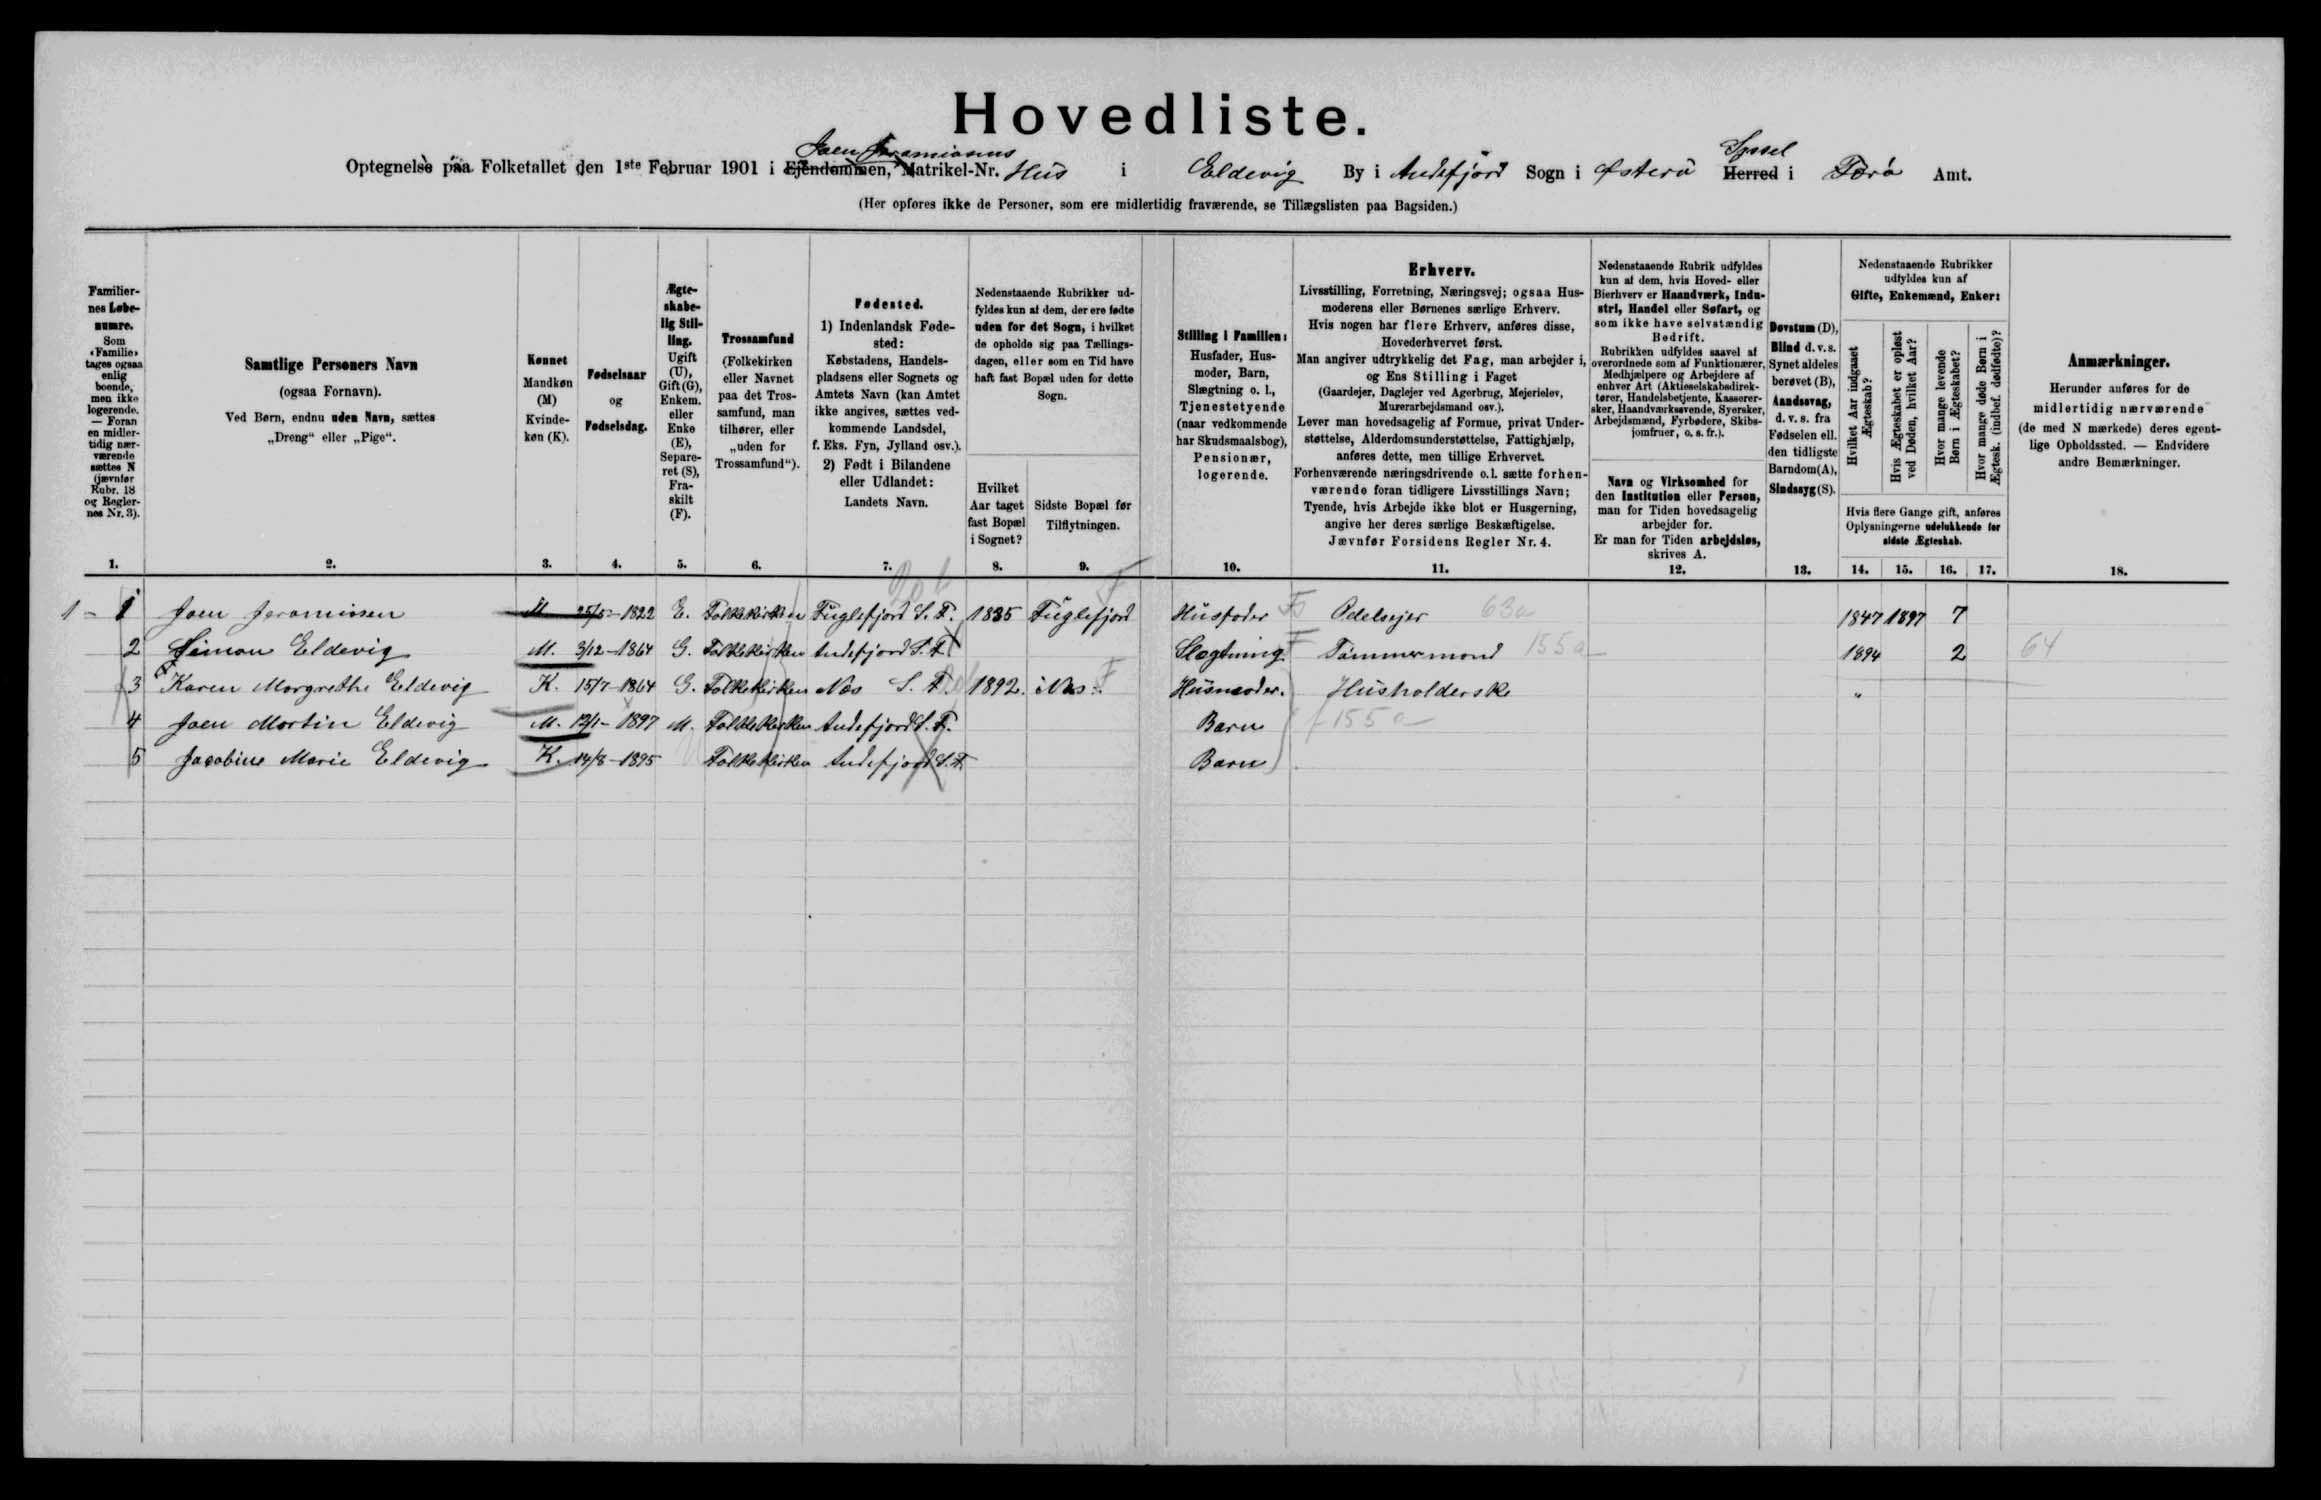 Hovedliste.
Joen Joramiasens Syssel
Optegnelse paa Folketallet den 1ste Februar 1901 i Ejendommen, Matrikel-Nr. Hus i Eldevig By i Andefjord Sogn i Østerø Herred i Færø Amt.
(Her opføres ikke de Personer, som ere midlertidig fraværende, se Tillægslisten paa Bagsiden.)
Familier-
nes Løbe-
numre.
Som
«Familie»
tages ogsaa
enlig
boende,
men ikke
logerende.
— Foran
en midler-
tidig nær-
værende
sættes N
(jævnfør
Rubr. 18
og Regler-
nes Nr. 3).
1.
Samtlige Personers Navn
(ogsaa Fornavn).
Ved Børn, endnu uden Navn, sættes
„Dreng“ eller „Pige“.
2.
Kønnet
Mandkøn
(M)
Kvinde-
køn (K).
3.
Fødselsaar
og
Fødselsdag.
4.
Ægte-
skabe-
lig Stil-
ling.
Ugift
(U),
Gift (G),
Enkem.
eller
Enke
(E),
Separe-
ret (S),
Fra-
skilt
(F).
5.
Trossamfund
(Folkekirken
eller Navnet
paa det Tros-
samfund, man
tilhører, eller
„uden for
Trossamfund“).
6.
Fødested.
1) Indenlandsk Føde-
sted:
Købstadens, Handels-
pladsens eller Sognets og
Amtets Navn (kan Amtet
ikke angives, sættes ved-
kommende Landsdel,
f. Eks. Fyn, Jylland osv.).
2) Født i Bilandene
eller Udlandet:
Landets Navn.
7.
Nedenstaaende Rubrikker ud-
fyldes kun af dem, der ere fødte
uden for det Sogn, i hvilket
de opholde sig paa Tællings-
dagen, eller som en Tid have
haft fast Bopæl uden for dette
Sogn.
Hvilket
Aar taget
fast Bopæl
i Sognet?
8.
Sidste Bopæl før
Tilflytningen.
9.
Stilling i Familien:
Husfader, Hus-
moder, Barn,
Slægtning o. l.,
Tjenestetyende
(naar vedkommende
har Skudsmaalsbog),
Pensionær,
logerende.
10.
Erhverv.
Livsstilling, Forretning, Næringsvej; ogsaa Hus-
moderens eller Børnenes særlige Erhverv.
Hvis nogen har flere Erhverv, anføres disse,
Hovederhvervet først.
Man angiver udtrykkelig det Fag, man arbejder i,
og Ens Stilling i Faget
(Gaardejer, Daglejer ved Agerbrug, Mejerielev,
Murerarbejdsmand osv.).
Lever man hovedsagelig af Formue, privat Under-
støttelse, Alderdomsunderstøttelse, Fattighjælp,
anføres dette, men tillige Erhvervet.
Forhenværende næringsdrivende o. l. sætte forhen-
værende foran tidligere Livsstillings Navn;
Tyende, hvis Arbejde ikke blot er Husgerning,
angive her deres særlige Beskæftigelse.
Jævnfør Forsidens Regler Nr. 4.
11.
Nedenstaaende Rubrik udfyldes
kun af dem, hvis Hoved- eller
Bierhverv er Haandværk, Indu-
stri, Handel eller Søfart, og
som ikke have selvstændig
Bedrift.
Rubrikken udfyldes saavel af
overordnede som af Funktionærer,
Medhjælpere og Arbejdere af
enhver Art (Aktieselskabsdirek-
tører, Handelsbetjente, Kasserer-
sker, Haandværkssvende, Syersker,
Arbejdsmænd, Fyrbødere, Skibs-
jomfruer, o. s. fr.).
Navn og Virksomhed for
den Institution eller Person,
man for Tiden hovedsagelig
arbejder for.
Er man for Tiden arbejdsløs,
skrives A.
12.
Døvstum (D),
Blind d. v. s.
Synet aldeles
berøvet (B),
Aandssvag,
d. v. s. fra
Fødselen ell.
den tidligste
Barndom (A),
Sindssyg (S).
13.
Nedenstaaende Rubrikker
udfyldes kun af
Gifte, Enkemænd, Enker:
Hvilket Aar indgaaet
Ægteskab?
Hvis Ægteskabet er opløst
ved Døden, hvilket Aar?
Hvor mange levende
Børn i Ægteskabet?
Hvor mange døde Børn i
Ægtesk. (indbef. dødfødte)?
Hvis flere Gange gift, anføres
Oplysningerne udelukkende for
sidste Ægteskab.
14. 15. 16. 17.
Anmærkninger.
Herunder anføres for de
midlertidig nærværende
(de med N mærkede) deres egent-
lige Opholdssted. — Endvidere
andre Bemærkninger.
18.
1 – 1 Joen Joramiasen M 25/5 – 1822 E. Folkekirken Fuglefjord S. F. 1835 Fuglefjord F Husfader Odelsejer 63a 1847 1897 7
2 Simon Eldevig M. 3/12 – 1864 G. Folkekirken Andefjord S. F. Slægtning F Tømmermand 155a 1894 2 64
3 Karen Margrethe Eldevig K. 15/7 – 1864 G. Folkekirken Næs S. F. 1892. i Næs. F Husmoder. Husholderske "
4 Joen Martin Eldevig M. 12/1 – 1897 M. Folkekirken Andefjord S. F. Barn 155a
5 Jacobine Marie Eldevig K. 14/8 – 1895 Folkekirken Andefjord S. F. Barn